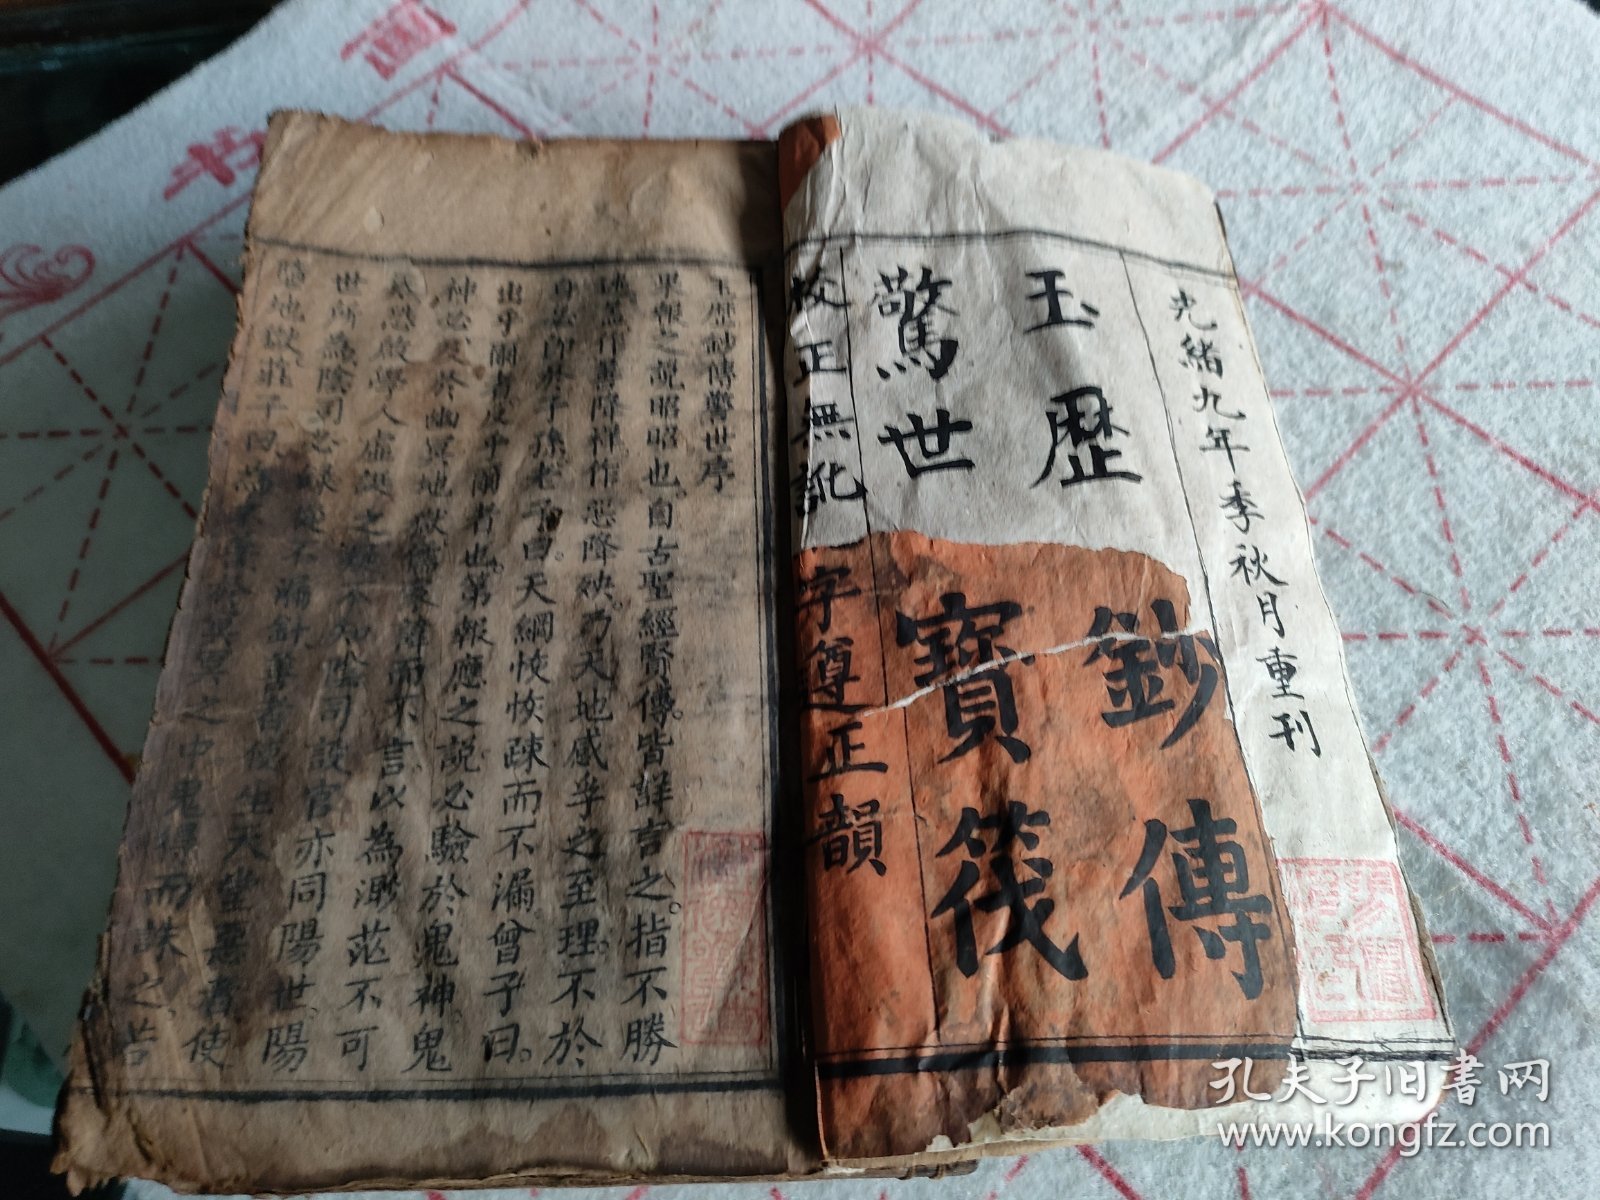 光緒九年季秋月重刊
玉歷鈔傳
驚世寶筏
校正無訛 字遵正韻
玉歷鈔傳警世序
果報之說昭昭也。自古聖經賢傳。皆詳言之。指不勝
述。蓋作善降祥作惡降殃。乃天地感孚之至理。不於
身必卽於子孫。老子曰。天網恢恢疎而不漏。曾子曰。
出乎爾者反乎爾者也。第報應之說必驗於鬼神。鬼
神必及於幽冥地獄儒者諱而不言以為渺茫不可
啟學人虛誕之 不知陰司設官亦同陽世。陽
世所為陰司必錄 善者使生天堂惡者使
墮地獄。莊子曰為 冥之中鬼得而誅之。若
孔夫子旧書网
www.kongfz.com